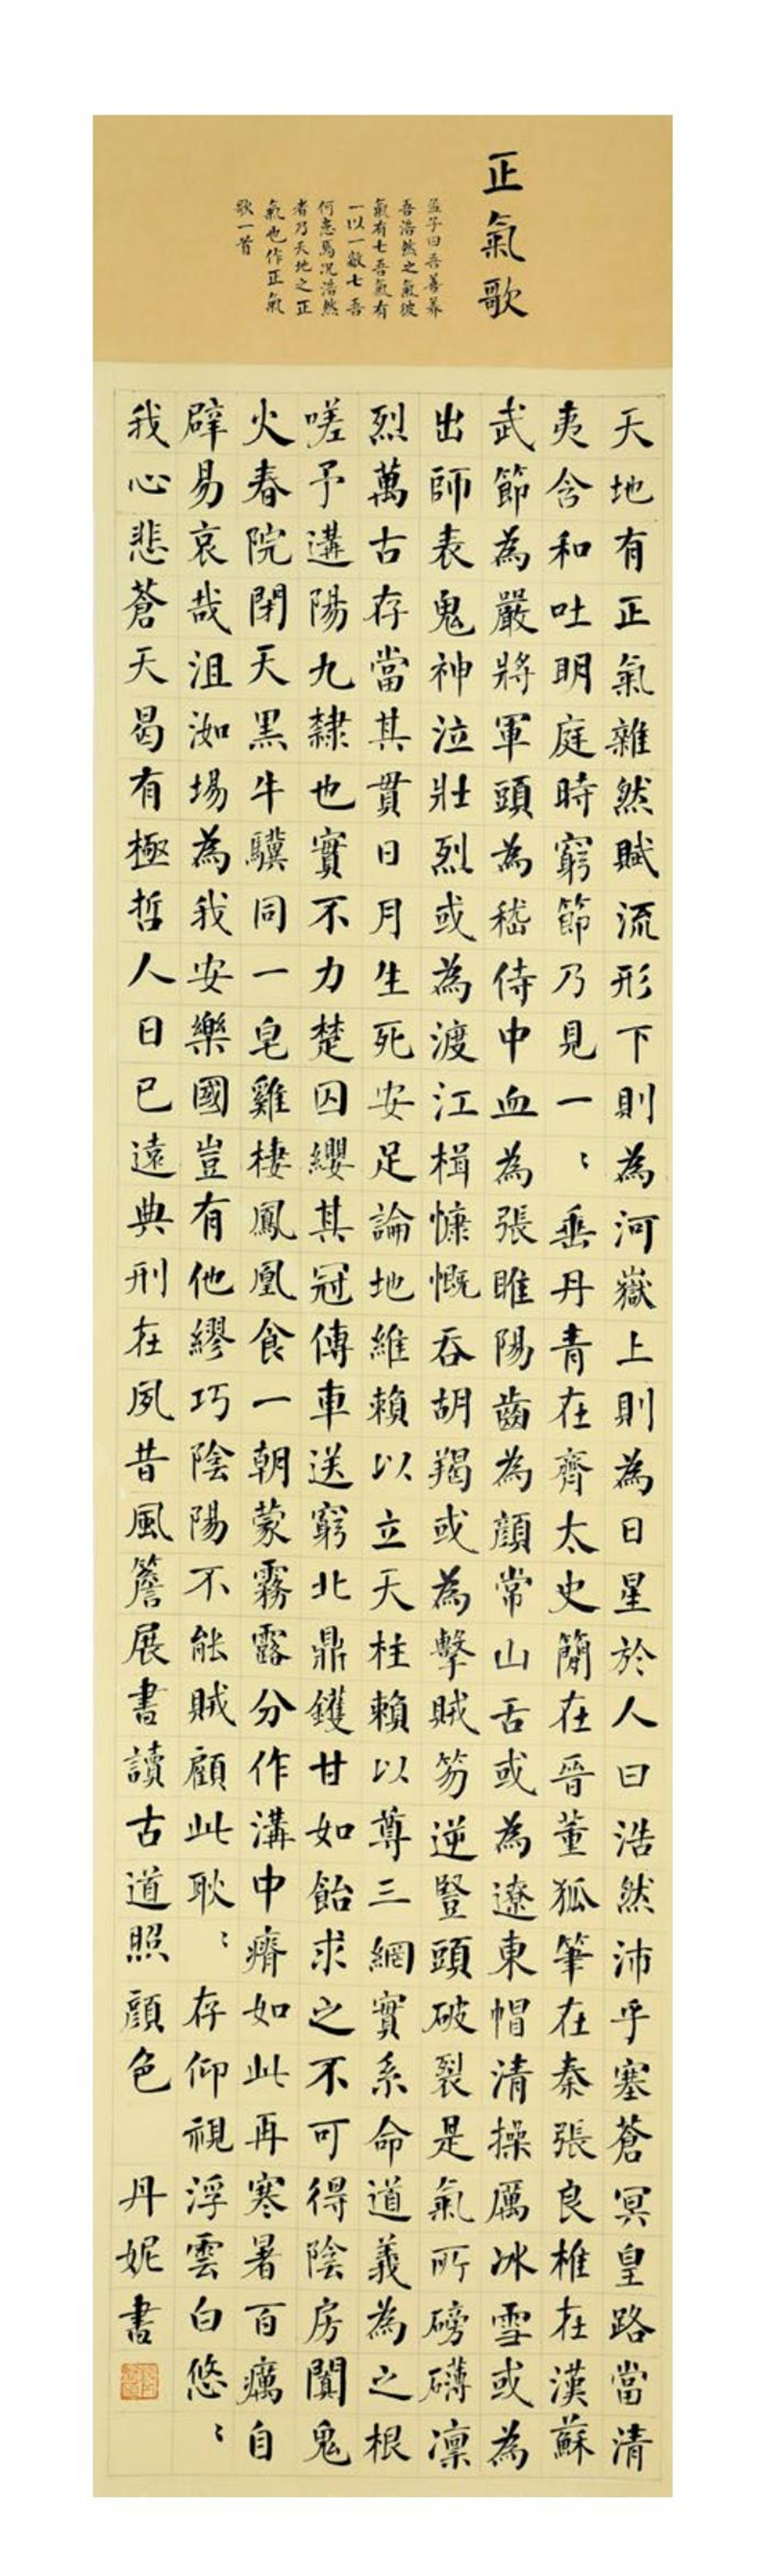 正氣歌
孟子曰吾善養
吾浩然之氣彼
氣有七吾氣有
一以一敵七吾
何患焉況浩然
者乃天地之正
氣也作正氣
歌一首
天地有正氣雜然賦流形下則為河嶽上則為日星於人曰浩然沛乎塞蒼冥皇路當清
夷含和吐明庭時窮節乃見一〻垂丹青在齊太史簡在晉董狐筆在秦張良椎在漢蘇
武節為嚴將軍頭為嵇侍中血為張睢陽齒為顏常山舌或為遼東帽清操厲冰雪或為
出師表鬼神泣壯烈或為渡江楫慷慨吞胡羯或為擊賊笏逆豎頭破裂是氣所磅礴凜
烈萬古存當其貫日月生死安足論地維賴以立天柱賴以尊三綱實系命道義為之根
嗟予遘陽九隸也實不力楚囚纓其冠傳車送窮北鼎鑊甘如飴求之不可得陰房闃鬼
火春院閉天黑牛驥同一皂雞棲鳳凰食一朝蒙霧露分作溝中瘠如此再寒暑百癘自
辟易哀哉沮洳場為我安樂國豈有他繆巧陰陽不能賊顧此耿〻存仰視浮雲白悠〻
我心悲蒼天曷有極哲人日已遠典刑在夙昔風簷展書讀古道照顏色 丹妮書